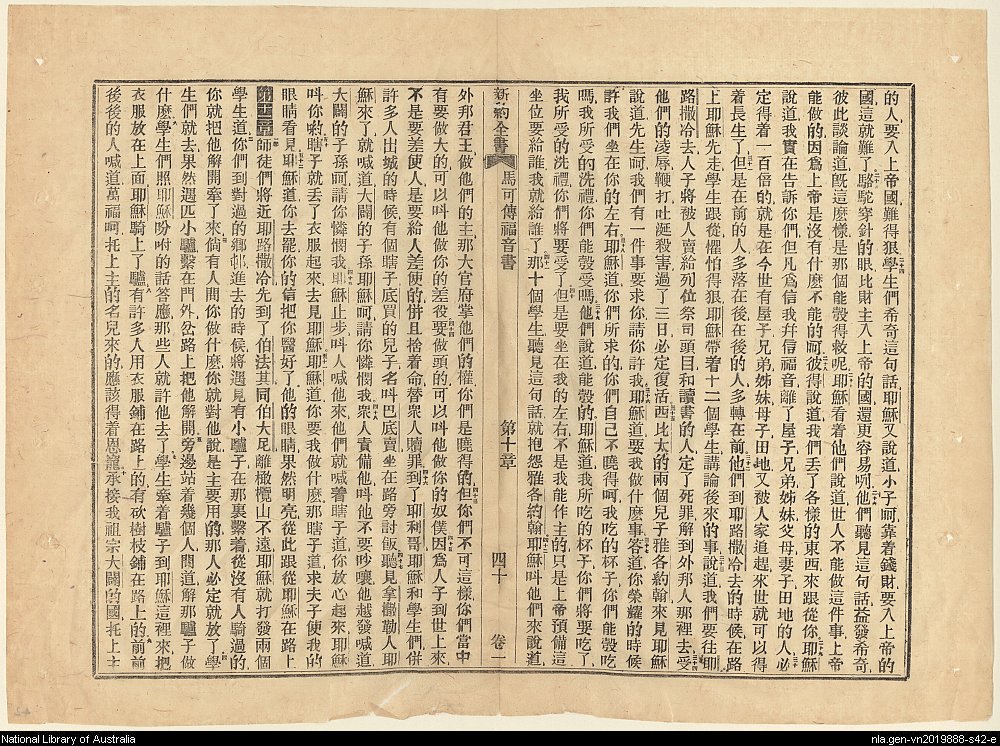 的人要入上帝國難得狠學生們希奇這句話耶穌又說道小子呵靠着錢財要入上帝的
國這就難了駱駝穿針的眼比財主入上帝的國還更容易咧他們聽見這句話益發希奇
彼此談論道旣這麽樣是那個能彀得救呢耶穌看着他們說道世人不能做這件事上帝
能做的因爲上帝是沒有什麽不能的呵彼得說道我們丟了各樣的東西來跟從你耶穌
說道我實在告訴你們但凡爲信我幷信福音離了屋子兄弟姊妹父母妻子田地的人必
定得着一百倍的就是在今世有屋子兄弟姊妹母子田地又被人家追趕來世就可以得
着長生了但是在前的人多落在後在後的人多轉在前他們到耶路撒冷去的時候在路
上耶穌先走學生跟從懼怕得狠耶穌帶着十二個學生講論後來的事說道我們要往耶
路撒冷去人子將被人賣給列位祭司頭目和讀書的人定了死罪解到外邦人那裡去受
他們的凌辱鞭打吐涎殺害過了三日必定復活西比太的兩個兒子雅各約翰來見耶穌
說道先生呵我們有一件事要求你請你許我耶穌道要我做什麽事答道你榮耀的時候
許我們坐在你的左右耶穌道你們所求的你們自己不曉得呵我吃的杯子你們能彀吃
嗎我所受的洗禮你們能彀受嗎他們說道能彀的耶穌道我所吃的杯子你們將要吃了
我所受的洗禮你們將要受了但是要坐在我的左右不是我能作主的只是上帝預備這
坐位要給誰我就給誰了那十個學生聽見這句話就抱怨雅各約翰耶穌呌他們來說道
新約全書 馬可傳福音書 第十章 四十 卷一
外邦君王做他們的主那大官府掌他們的權你們是曉得的但你們不可這樣你們當中
有要做大的可以呌他做你的差役要做頭的可以呌他做你的奴僕因爲人子到世上來
不是要差使人是要給人差使的併且拾着命替衆人贖罪到了耶利哥耶穌和學生們併
許多人出城的時候有個瞎子底買的兒子名呌巴底賣坐在路旁討飯聽見拿撒勒人耶
穌來了就喊道大闢的子孫耶穌呵請你憐憫我衆人責備他呌他不要吵嚷他越發喊道
大闢的子孫呵請你憐憫我耶穌止步呌人喊他來他們就喊着瞎子道你放心起來耶穌
呌你喲瞎子就丟了衣服起來去見耶穌耶穌道你要我做什麽那瞎子道求夫子使我的
眼睛看見耶穌道你去罷你的信把你醫好了他的眼睛果然明亮從此跟從耶穌在路上
第十一章師徒們將近耶路撒冷先到了伯法其同伯大尼離橄欖山不遠耶穌就打發兩個
學生道你們到對過的鄉邨進去的時候將遇見有小驢子在那裏繫着從沒有人騎過的
你就把他解開牽了來倘有人問你做什麽你就對他說是主要用的那人必定就放了學
生們就去果然遇匹小驢繫在門外岔路上把他解開旁邊站着幾個人問道解那驢子做
什麽學生們照耶穌吩咐的話答應那些人就許他去了學生牽着驢子到耶穌這裡來把
衣服放在上面耶穌騎上了驢有許多人用衣服鋪在路上的有砍樹枝鋪在路上的前前
後後的人喊道萬福呵托上主的名兒來的應該得着恩寵承接我祖宗大闢的國托上主
National Library of Australia
nla.gen-vn2019888-s42-e